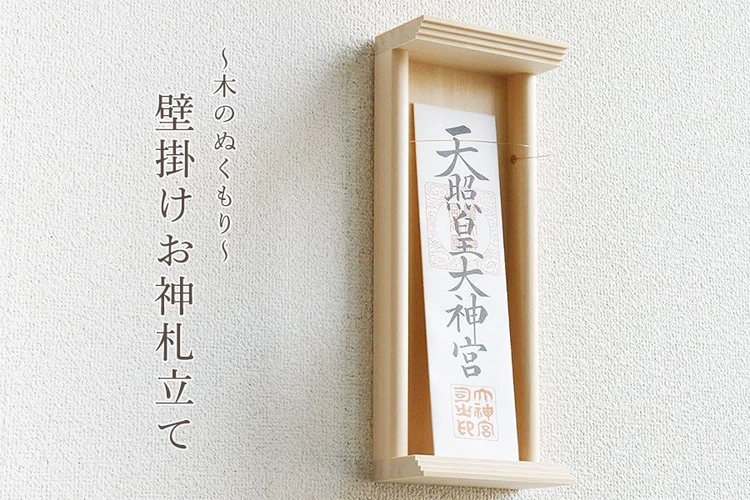 ～木のぬくもり～
壁掛けお神札立て
天照皇大神宮
大神宮
司之印